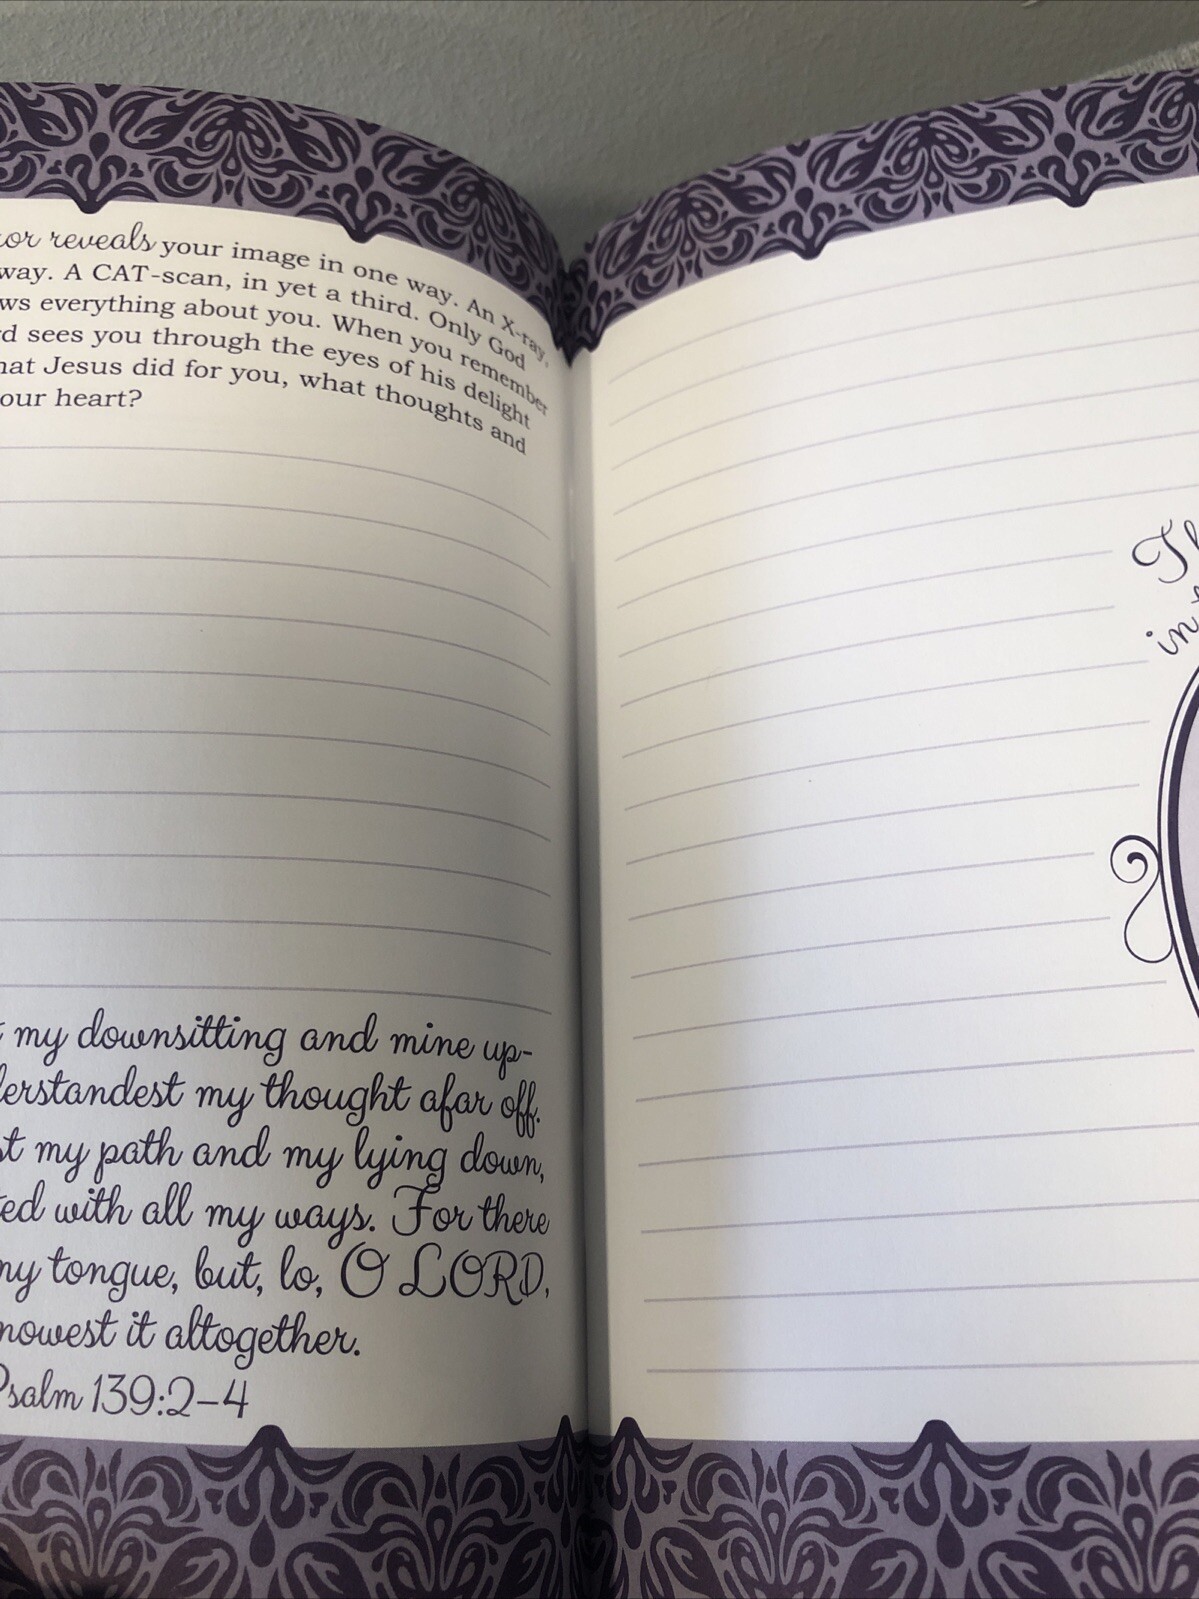 reveals your image in one way. An X-ray,
way. A CAT-scan, in yet a third. Only God
ws everything about you. When you remember
d sees you through the eyes of his delight
hat Jesus did for you, what thoughts and
our heart?
my downsitting and mine up-
derstandest my thought afar off.
st my path and my lying down,
ted with all my ways. For there
my tongue, but, lo, O LORD,
nowest it altogether.
Psalm 139:2–4
Th
in